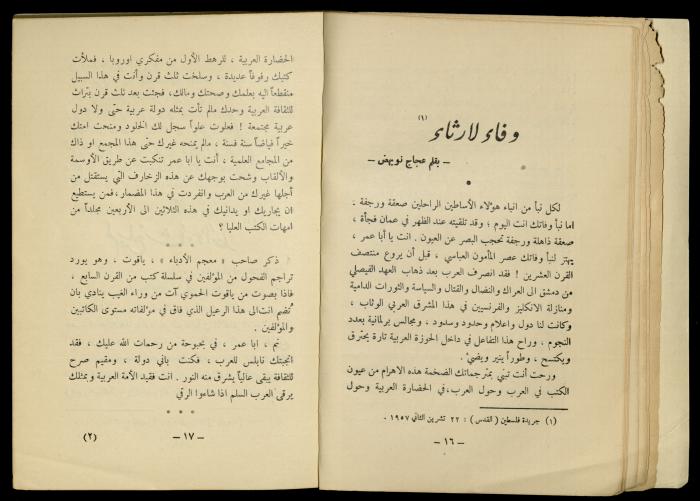 وفاء لا رثاء (١)
– بقلم عجاج نويهض –
لكل نبأ من انباء هؤلاء الأساطين الراحلين صعقة ورجفة ،
اما نبأ وفاتك انت اليوم ؛ وقد تلقيته عند الظهر في عمان فجأة ،
صعقة ذاهلة ورجفة تحجب البصر عن العيون . انت يا أبا عمر ،
يهتز لنبأ وفاتك عصر المأمون العباسي ، قبل أن يروع منتصف
القرن العشرين ! فقد انصرف العرب بعد ذهاب العهد الفيصلي
من دمشق الى العراك والنضال والقتال والسياسة والثورات الدامية
ومنازلة الانكليز والفرنسيين في هذا المشرق العربي الوثاب ،
وكانت لنا دول واعلام وحدود وسدود ، ومجالس برلمانية بعدد
النجوم ، وراح هذا التفاعل في داخل الحوزة العربية تارة يحترق
ويكتسح ، وطوراً ينير ويضيء .
ورحت أنت تبني بمترجماتك الضخمة هذه الاهرام من عيون
الكتب في العرب وحول العرب، في الحضارة العربية وحول
(١) جريدة فلسطين ( القدس ) : ٢٢ تشرين الثاني ١٩٥٧ .
– ١٦ –
الحضارة العربية ، للرهط الأول من مفكري اوروبا ، فملأت
كتبك رفوفاً عديدة ، وسلخت ثلث قرن وأنت في هذا السبيل
منقطعاً اليه بعلمك وصحتك ومالك، فجئت بعد ثلث قرن بتراث
للثقافة العربية وحدك مالم تأت بمثله دولة عربية حتى ولا دول
عربية مجتمعة ! فعلوت علواً سجل لك الخلود ومنحت امتك
خيراً فياضاً سنة فسنة ، مالم يمنحه غيرك حتى هذا المجمع او ذاك
من المجامع العلمية ، أنت يا ابا عمر تنكبت عن طريق الأوسمة
والألقاب وشحت بوجهك عن هذه الزخارف التي يستقتل من
أجلها غيرك من العرب وانفردت في هذا المضمار، فمن يستطيع
ان يجاريك او يدانيك في هذه الثلاثين الى الأربعين مجلداً من
امهات الكتب العليا ؟
* * *
ذكر صاحب « معجم الأدباء » ، ياقوت ، وهو يورد
تراجم الفحول من المؤلفين في سلسلة كتب من القرن السابع ،
فاذا بصوت من ياقوت الحموي آت من وراء الغيب ينادي بان
تُضم انت الى هذا الرعيل الذي فاق في مؤلفاته مستوى الكاتبين
والمؤلفين .
نم ، ابا عمر ، في بحبوحة من رحمات الله عليك ، فقد
انجبتك نابلس للعرب ، فكنت باني دولة ، ومقيم صرح
للثقافة يبقى عالياً يشرق منه النور . انت فقيد الأمة العربية وبمثلك
يرقى العرب السلم اذا شاءوا الرقي
* * *
– ١٧ –
(٢)